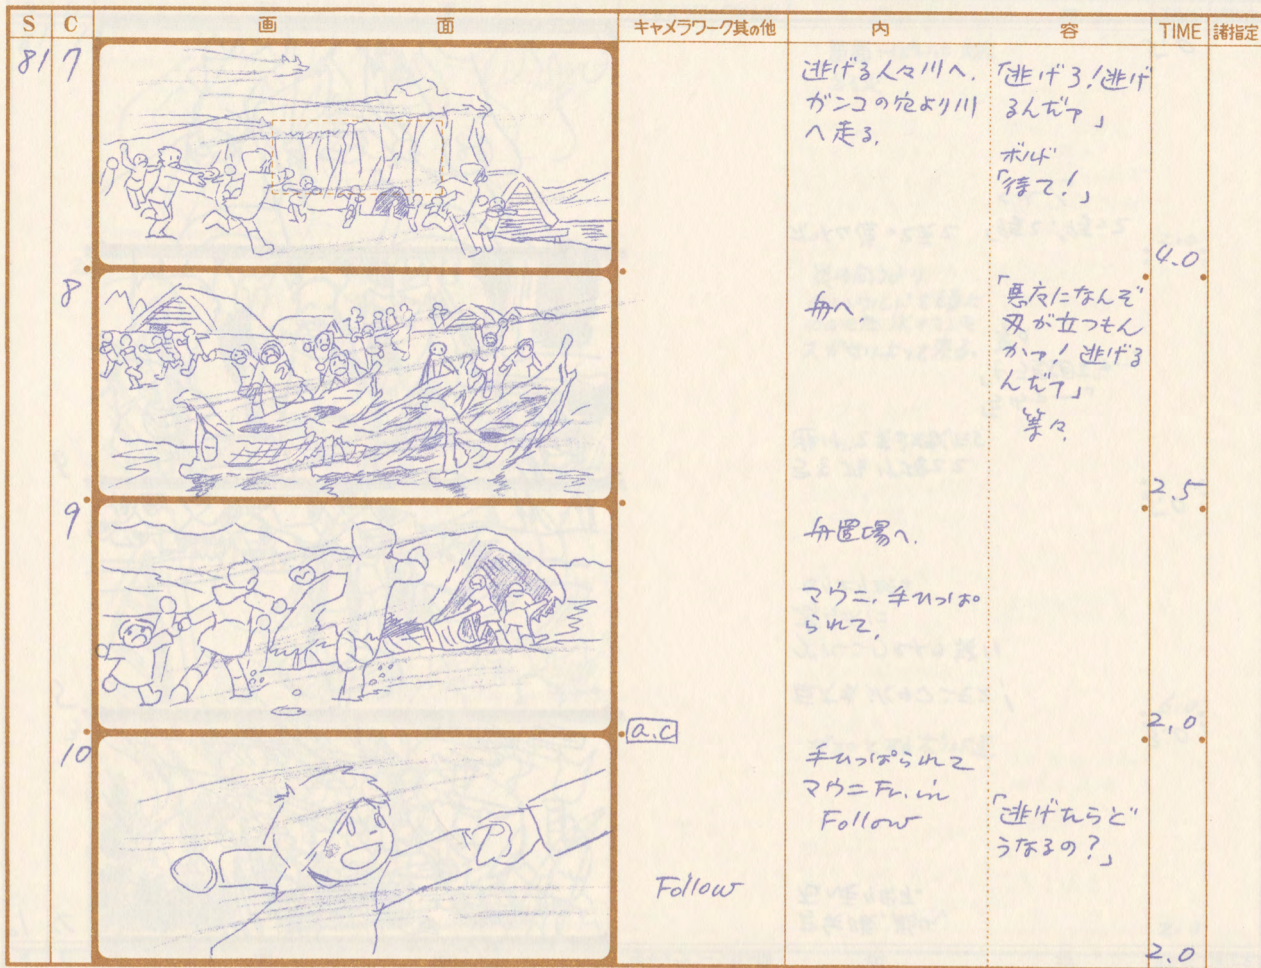 S C 画面 キャメラワーク其の他 内容 TIME 諸指定
81 7
逃げる人々川へ.
ガンコの穴より川
へ走る.
「逃げろ!逃げ
るんだァ」
ボルド
「待て!」
4.0
8
舟へ
「悪灰になんぞ
刃が立つもん
かァ!逃げる
んだァ」
等々.
2.5
9
舟置場へ.
マウニ.手ひっぱ
られて.
2.0
a.c
10
手ひっぱられて
マウニFr.in
Follow
「逃げたらど
うなるの?」
Follow
2.0